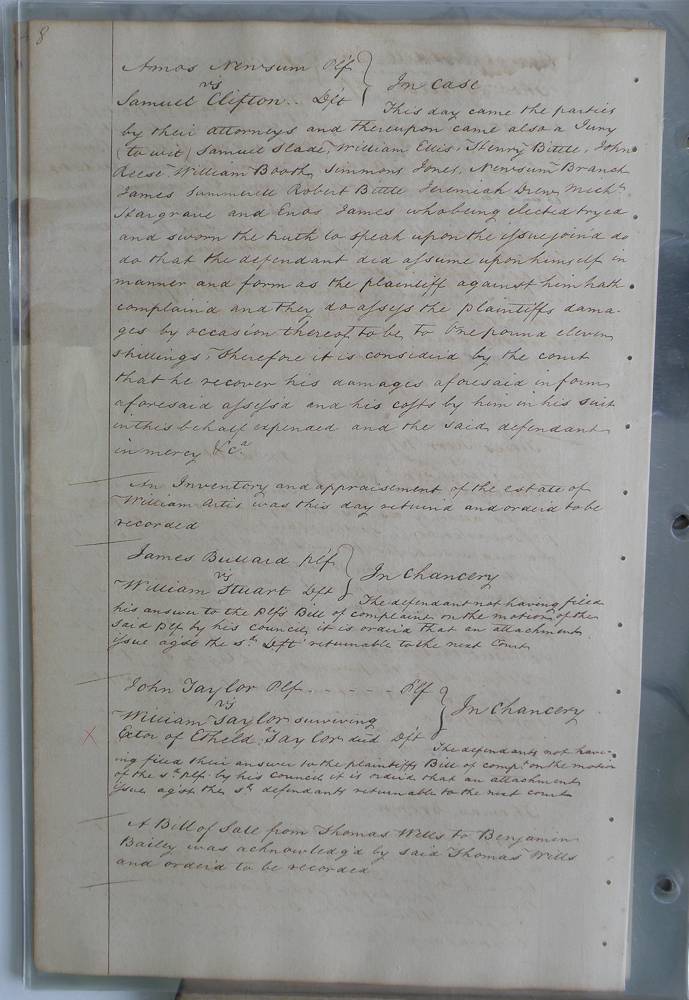 8
Amos Newsum Plf
vs
Samuel Clifton .. Deft } In Case
This day came the parties
by their attorneys and thereupon came also a Jury
(to wit) Samuel Slade, William Ellis, Henry Bittle, John
Reese, William Booth, Simmons Jones, Newsum Branch
James Summerell Robert Bittle Jeremiah Drew Mich.l
Hargrave and Enos James who being elected tryed
and sworn the truth to speak upon the issue join'd do
do that the defendant did assume upon himself in
manner and form as the plaintiff against him hath
complain'd and they do assess the plaintiffs dama-
ges by occasion thereof to be to One pound eleven
shillings, Therefore it is consider'd by the court
that he recover his damages aforesaid in form
aforesaid assess'd and his costs by him in his suit
in this behalf expended and the said defendant
in mercy &c.a
An Inventory and appraisement of the estate of
William Artis was this day return'd and order'd to be
recorded
James Bullard Plf
vs
William Stuart Deft } In Chancery
The defendant not having filed
his answer to the Plfs Bill of complaint on the motion of the
said Plf by his council it is order'd that an attachment
issue ag'st the s.d Deft returnable to the next Court
John Taylor Plf - - - - - Plf
vs
William Taylor surviving
Exor of Etheld. Taylor dec'd Deft } In Chancery
The defendants not hav-
ing filed their answer to the plaintiffs Bill of comp.t on the motion
of the s.d Plf by his council it is order'd that an attachment
issue ag'st the s.d defendants returnable to the next court
A Bill of Sale from Thomas Wills to Benjamin
Bailey was acknowledg'd by said Thomas Wills
and order'd to be recorded